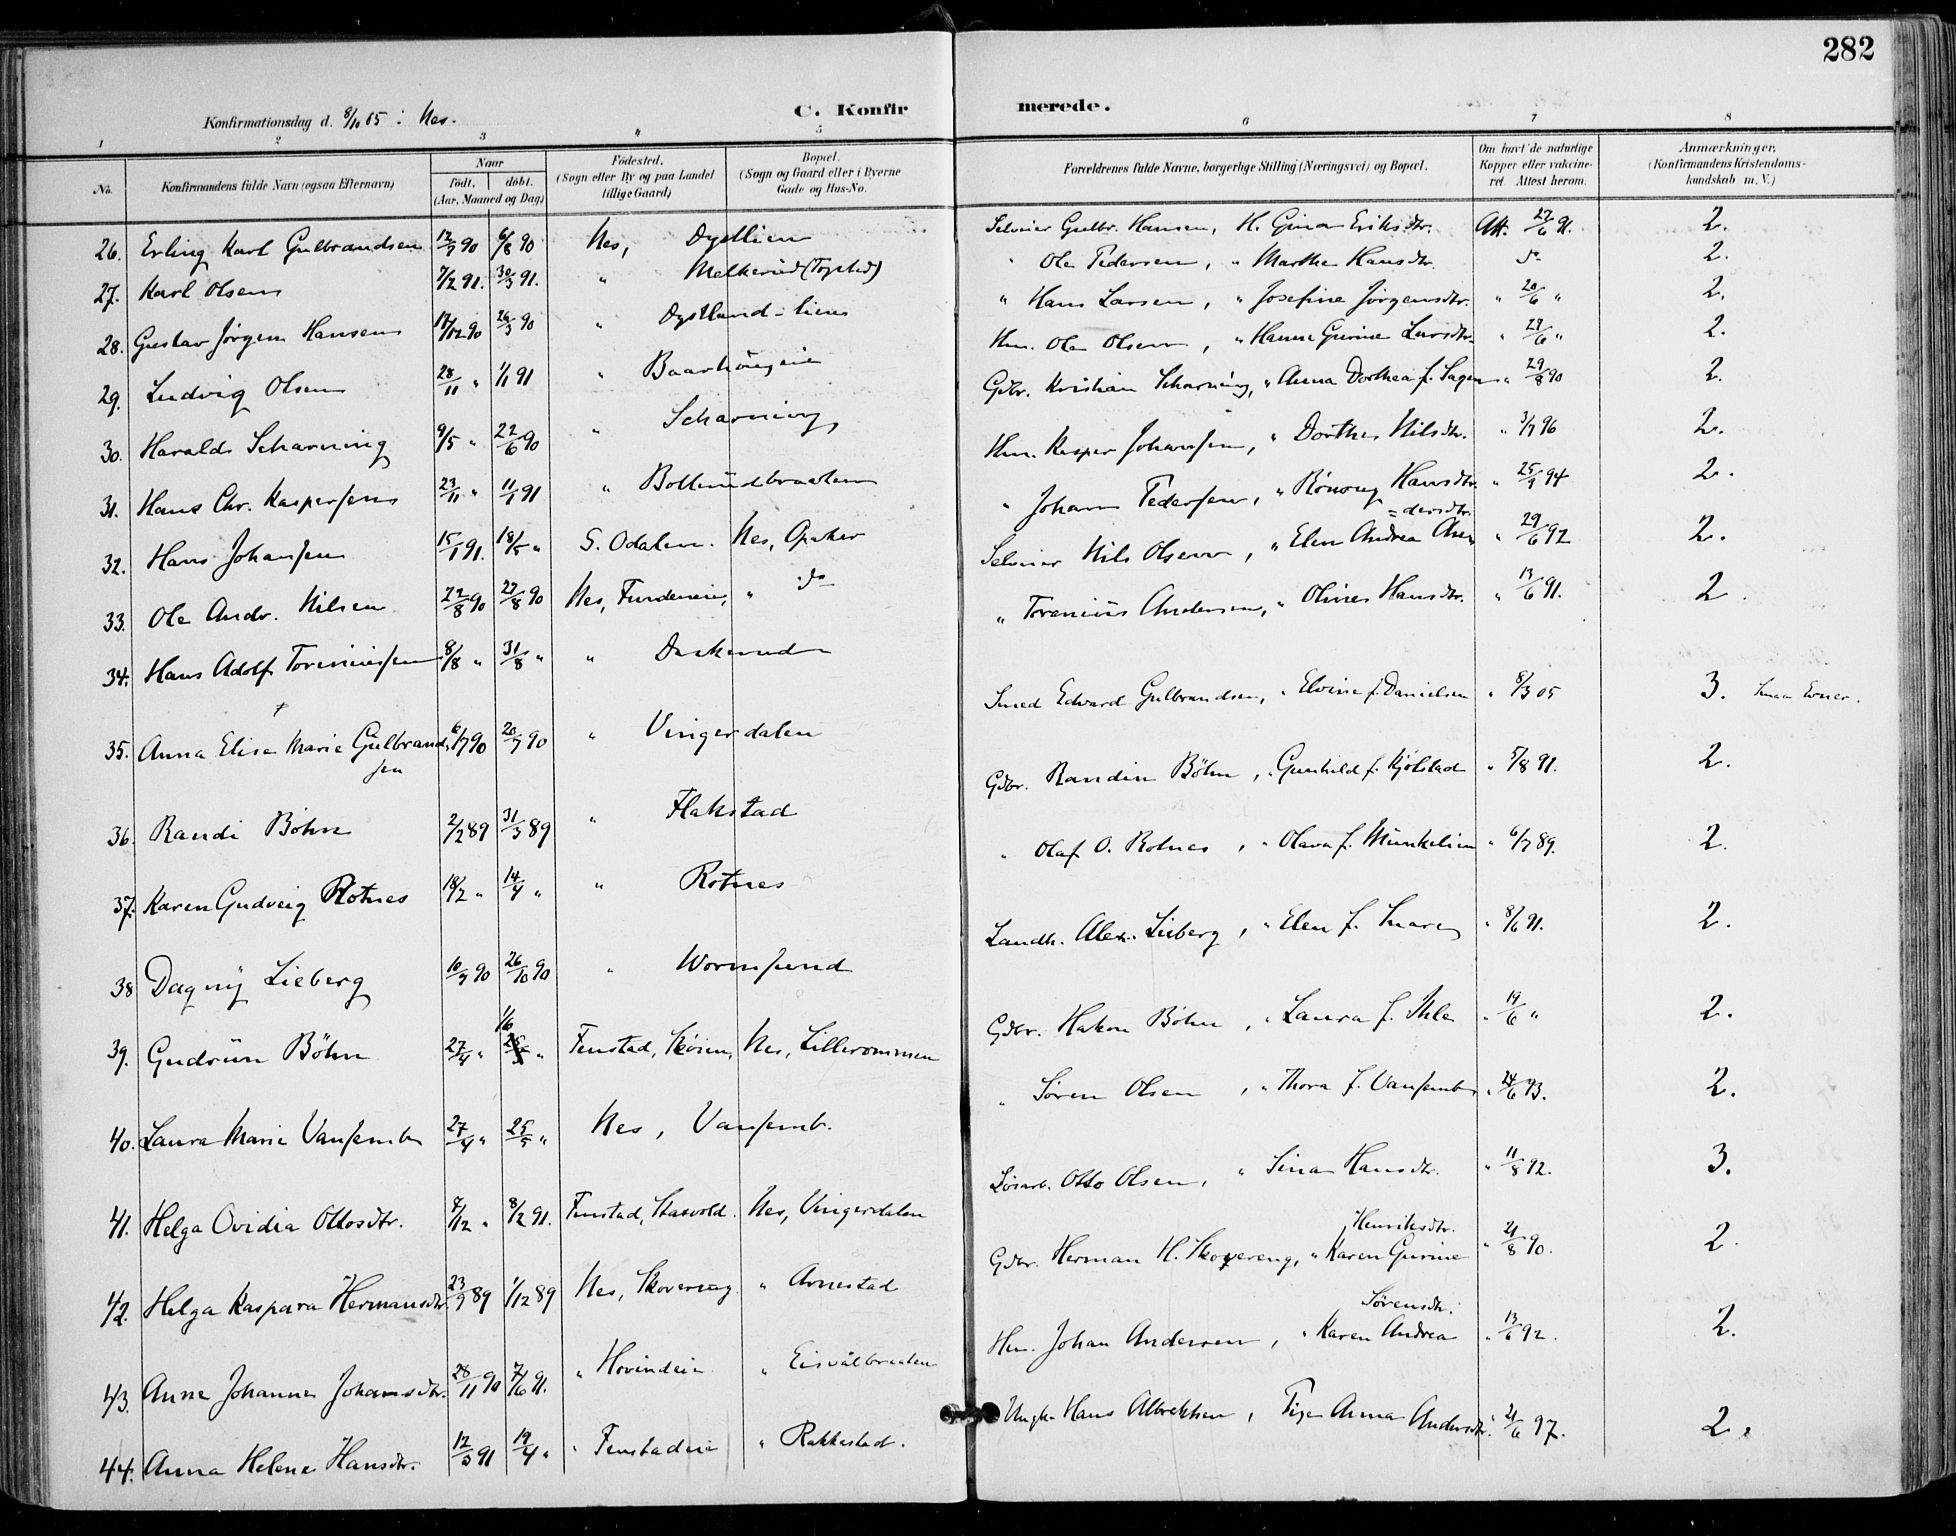 282
Konfirmationsdag d. 8/10 05 i Nes.
C. Konfirmerede.
1 2 3 " 5 6 7 8
No. Konfirmandens fulde Navn (ogsaa Efternavn) Naar født. døbt. (Aar, Maaned og Dag) Fødested. (Sogn eller By og paa Landet tillige Gaard) Bopæl. (Sogn og Gaard eller i Byerne Gade og Hus-No. Forældrenes fulde Navne, borgerlige Stilling (Næringsvei) og Bopæl. Om havt de naturlige Kopper eller vaccineret. Attest herom. Anmærkninger. (Konfirmandens Kristendomskundskab m. V.)
26. Erling Karl Gulbrandsen 12/7 90 6/8 90 Nes, Dystlien Selveier Gulbr. Hansen, H. Gina Eriksdtr. Att. 27/6 91. 2.
27. Karl Olsen 7/2 91. 30/3 91. " Melkerud (Togstad) " Ole Pedersen, " Marthe Hansdtr. do 2.
28. Gustav Jørgen Hansen 17/12 90 26/3 90 " Dystland-lien " Hans Larsen, " Josefine Jørgensdtr. " 20/6 " 2.
29. Ludvig Olsen 28/11 " 1/1 91 " Baarhaugeie Hm. Ole Olsen, " Hanne Gurine Larsdtr. " 27/6 " 2.
30. Harald Scharning 9/5 " 22/6 90 " Scharning Gdbr. Kristian Scharning, " Anna Dorthea f. Sagen " 29/8 90 2.
31. Hans Chr. Kaspersen 23/11 " 11/1 91 " Bollerudbraaten Hm. Kasper Johansen, " Dorthe Nilsdtr. " 3/7 96 2.
32. Hans Johansen 15/1 91. 18/5 " S. Odalen. Nes, Opaker " Johan Pedersen, " Rønoug Hansdtr. " 25/9 94 2.
33. Ole Andr. Nilsen 22/8 90 27/8 90 Nes, Fundeneie, " do Selveier Nils Olsen, " Elen Andrea Andersdtr. " 29/6 92 2.
34. Hans Adolf Toreniussen 8/8 " 31/8 " " Daskerud " Torenius Andersen, " Oline Hansdtr. " 13/6 91. 2.
35. Anna Elise Marie Gulbrandsen 6/7 90 20/7 90 " Vingerdalen Smed Edvard Gulbrandsen, " Elvine f. Danielsen " 8/3 05 3. Smaa Evner.
36. Randi Bøhn 2/2 89 31/3 89 " Flakstad Gdbr. Randin Bøhn, " Gunhild f. Kjølstad " 5/8 91. 2.
37. Karen Gudveig Rotnes 18/2 " 14/4 " " Rotnes " Olaf O. Rotnes, " Olava f. Munkelien " 6/7 89. 2.
38 Dagny Lieberg 10/9 90 26/10 90 " Wormsund Landh. Alex. Lieberg, " Elen f. Snare " 8/6 91. 2.
39. Gudrun Bøhn 27/4 " 1/6 " Fenstad, Skøien, Nes, Lillerommen Gdbr. Hakon Bøhn, " Laura f. Ihle " 19/6 " 2.
40. Laura Marie Vansemb 27/4 " 25/5 " Nes, Vansemb. " Søren Olsen, " Thora f. Vansemb " 24/6 93. 2.
41. Helga Ovidia Ottosdtr. 8/12 " 8/2 91. Fenstad, Skasvold. Nes, Vingerdalen Løsarb. Otto Olsen, " Sina Hansdtr. " 11/8 92. 3.
42. Helga Kaspara Hermansdtr. 23/9 89 1/12 89 Nes, Skovereng " Arnestad Gdbr. Herman H. Skovereng, " Karen Gurine Henriksdtr. " 21/8 90. 2.
43. Anne Johanne Johansdtr. 28/11 90 7/6 91. " Hovindeie " Eisvålbraaten Hm. Johan Andersen, " Karen Andrea Sørensdtr. " 13/6 92. 2.
44. Anna Helene Hansdtr. 12/3 91 19/4 " " Fenstadeie " Rakkestad. Ungk. Hans Albrektsen, Pige Anna Andersdtr. " 21/6 97. 2.